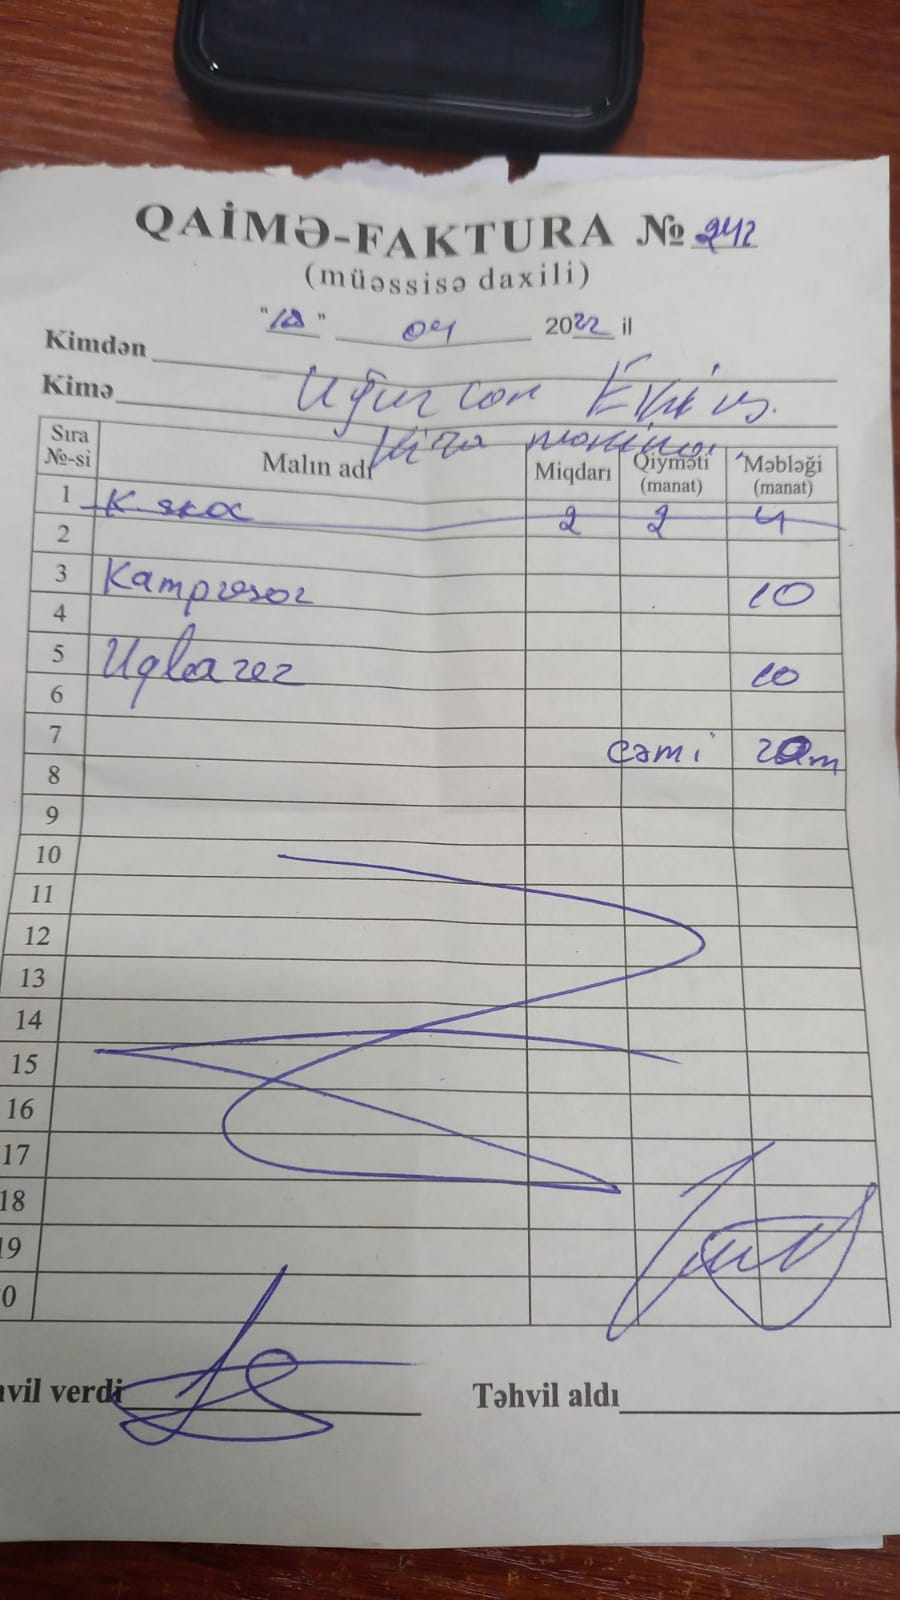 QAİMƏ-FAKTURA № 242
(müəssisə daxili)
"12" 04 2022 il
Kimdən
Kimə Uğur can
Kira maşına
Sıra №-si Malın adı Miqdarı Qiyməti (manat) Məbləği (manat)
1 K. 2 2 4
2
3 Kampresor 10
4
5 Uqlarez 10
6
7 Cəmi 20m
8
9
10
11
12
13
14
15
16
17
18
19
0
vil verdi Təhvil aldı